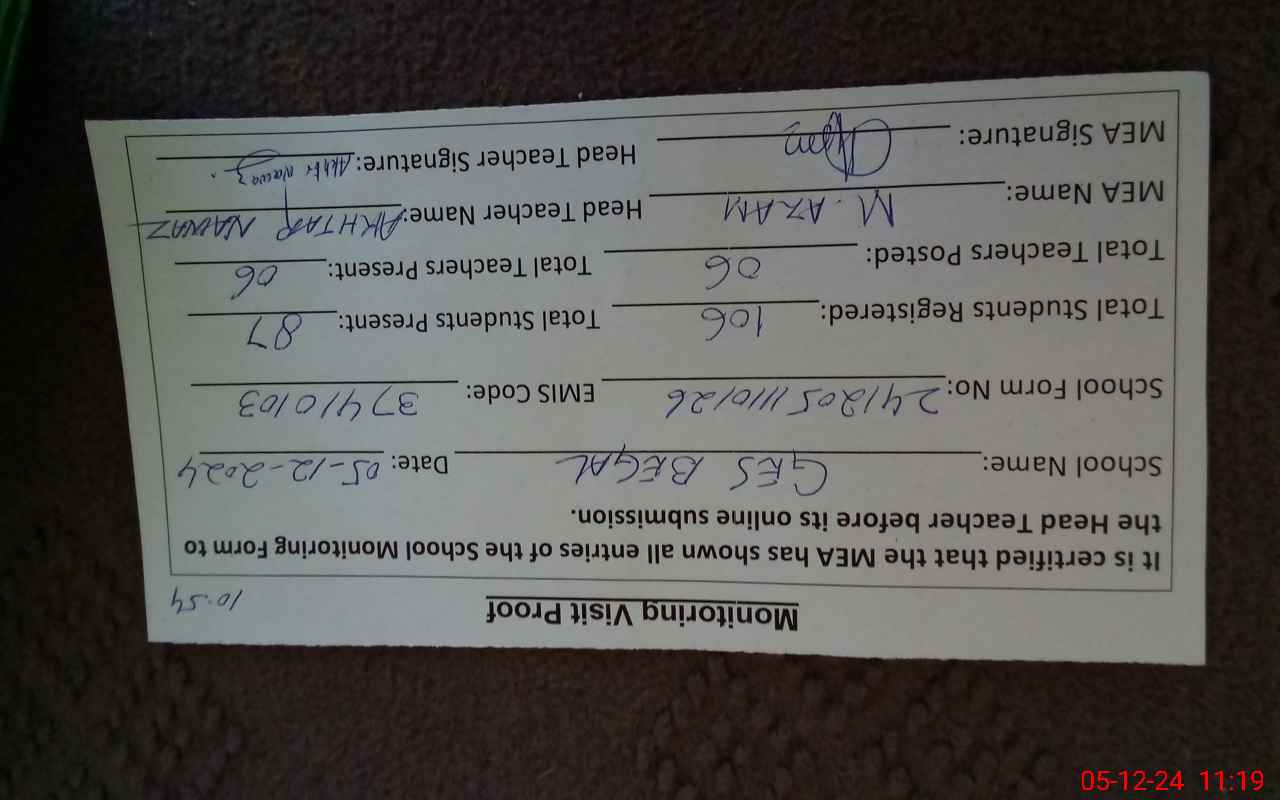 Monitoring Visit Proof
10:54
It is certified that the MEA has shown all entries of the School Monitoring Form to
the Head Teacher before its online submission.
School Name: GES BEGAL Date: 05-12-2024
School Form No: 2412051110126 EMIS Code: 37410103
Total Students Registered: 106 Total Students Present: 87
Total Teachers Posted: 06 Total Teachers Present: 06
MEA Name: M. AZAM Head Teacher Name: AKHTAR NAWAZ
MEA Signature: Head Teacher Signature: Akhtr Nawaz
05-12-24 11:19